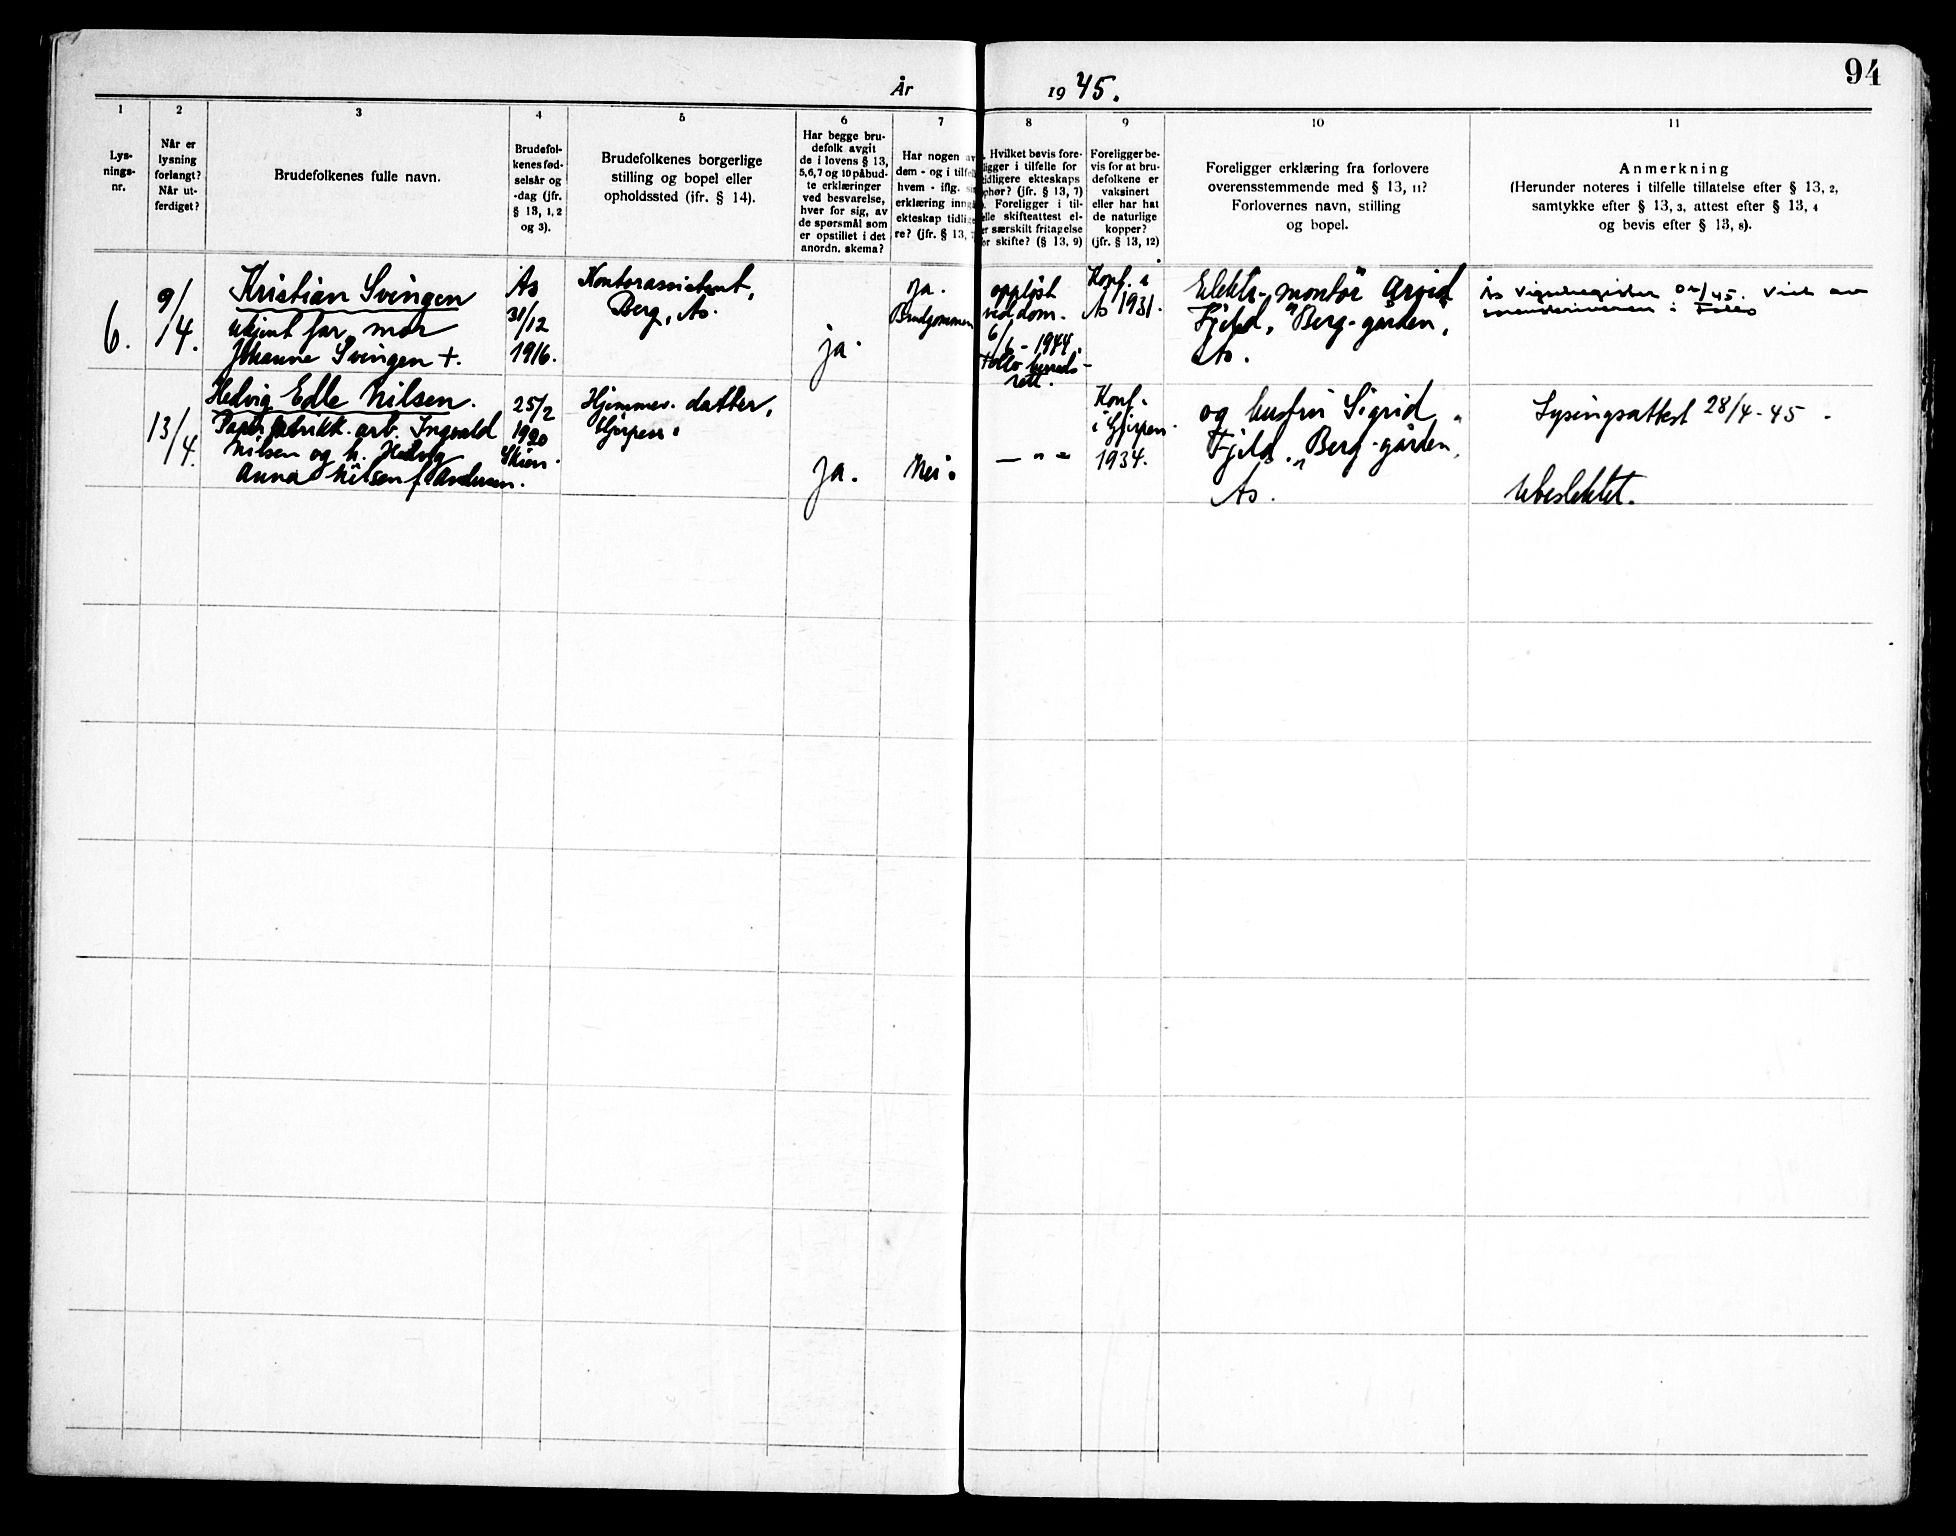 94
År 1945.
1 2 3 4 5 6 7 8 9 10 11
Lys-
nings-
nr.
Når er
lysning
forlangt?
Når ut-
ferdiget?
Brudefolkenes fulle navn.
Brudefol-
kenes fød-
selsår og
-dag (jfr.
§ 13, 1, 2
og 3).
Brudefolkenes borgerlige
stilling og bopel eller
opholdssted (jfr. § 14).
Har begge bru-
defolk avgit
de i lovens § 13,
5, 6, 7 og 10 påbud-
te erklæringer
ved besvarelse,
hver for sig, av
de spørsmål som
er opstillet i det
anordn. skema?
Har nogen av
dem - og i tilfel
hvem - iflg.
erklæring inngå
ekteskap tidlige
re? (jfr. § 13, 7
Hvilket bevis fore-
ligger i tilfelle for
tidligere ekteskaps
ophør? (jfr. § 13, 7)
Foreligger i til-
elle skifteattest el-
er særskilt fritagelse
or skifte? (§ 13, 9)
Foreligger be-
vis for at bru-
defolkene er
vaksinert
eller har hat
de naturlige
kopper?
(jfr. § 13, 12)
Foreligger erklæring fra forlovere
overensstemmende med § 13, 11?
Forlovernes navn, stilling
og bopel.
Anmerkning
(Herunder noteres i tilfelle tillatelse efter § 13, 2,
samtykke efter § 13, 3, attest efter § 13, 4
og bevis efter § 13, 8).
6.
9/
/4.
Kristian Svingen
Ukjent far, mor
Johanne Svingen +.
Ås
31/12
1916.
Kontorassistent,
Berg, Ås.
ja.
ja.
Brudgommen
oppløst
ved dom.
6/6 - 1944.
Follo herreds-
rett.
Konf. i
Ås 1931.
Elektr.-montør Arvid
Fjeld, "Berg-gården,
Ås.
Ås vigselregister /45. Viet av
sorenskriveren i Follo
13/
/4.
Hedvig Edle Nilsen.
Papirfabrikk-arb. Ingvald
Nilsen og h. Hedvig
Anna Nilsen f. Andersen.
25/2
1920
Skien.
Hjemmev. datter,
Gjerpen.
ja.
Nei.
— " —
Konf.
i Gjerpen.
1934.
og husfru Sigrid
Fjeld, "Berg-gården,
Ås.
Lysingsattest 28/4-45.
Ubeslektet.